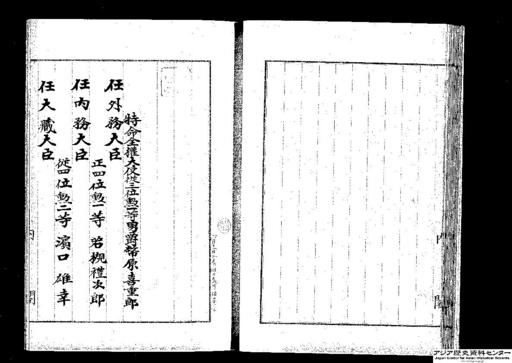 特命全權大使從三位勲一等男爵幣原喜重郎
任外務大臣
正四位勲一等 若槻禮次郎
任內務大臣
從四位勲二等 濱口雄幸
任大藏大臣
內
閣
內
閣
アジア歴史資料センター
Japan Center for Asian Historical Records